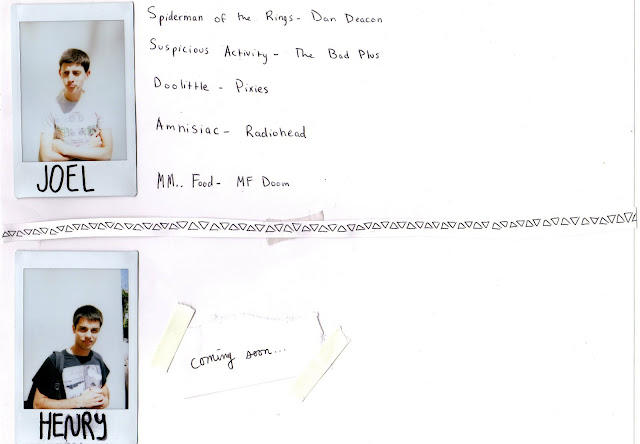 Spiderman of the Rings - Dan Deacon
Suspicious Activity - The Bad Plus
Doolittle - Pixies
Amnisiac - Radiohead
MM.. Food - MF Doom
JOEL
coming soon...
HENRY